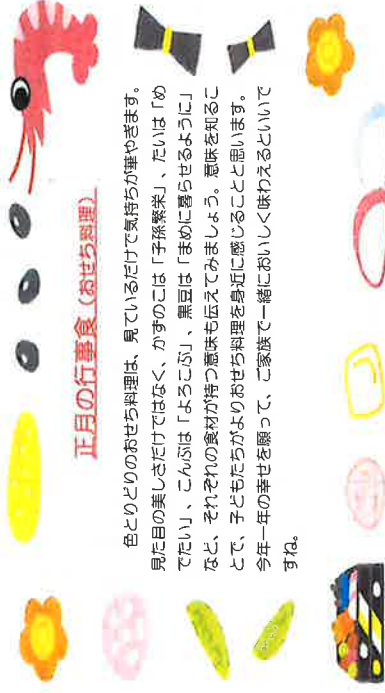 正月の行事食（おせち料理）
色とりどりのおせち料理は、見ているだけで気持ちが華やぎます。
見た目の美しさだけではなく、かずのこは「子孫繁栄」、たいは「め
でたい」、こんぶは「よろこぶ」、黒豆は「まめに暮らせるように」
など、それぞれの食材が持つ意味も伝えてみましょう。意味を知るこ
とで、子どもたちがよりおせち料理を身近に感じることと思います。
今年一年の幸せを願って、ご家族で一緒においしく味わえるといいで
すね。